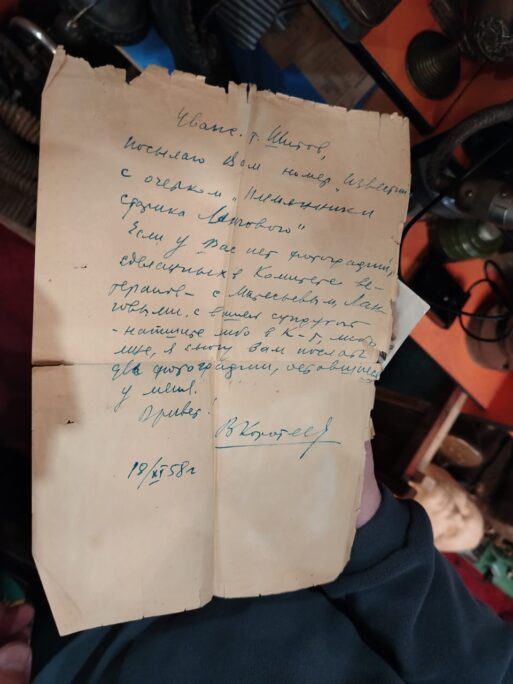 Уваж. т. Шитов,
посылаю Вам номер „Известий"
с очерком „Племянники
старика Лангового"
Если у Вас нет фотографий,
сделанных в Комитете ве-
теранов – с Матесьевым, Лан-
говыми, с Вашей супругой
- напишите либо в К-т, либо
мне, я смогу Вам послать
две фотографии, оставшиеся
у меня.
Привет!
В Коротеев
18/XI 58 г